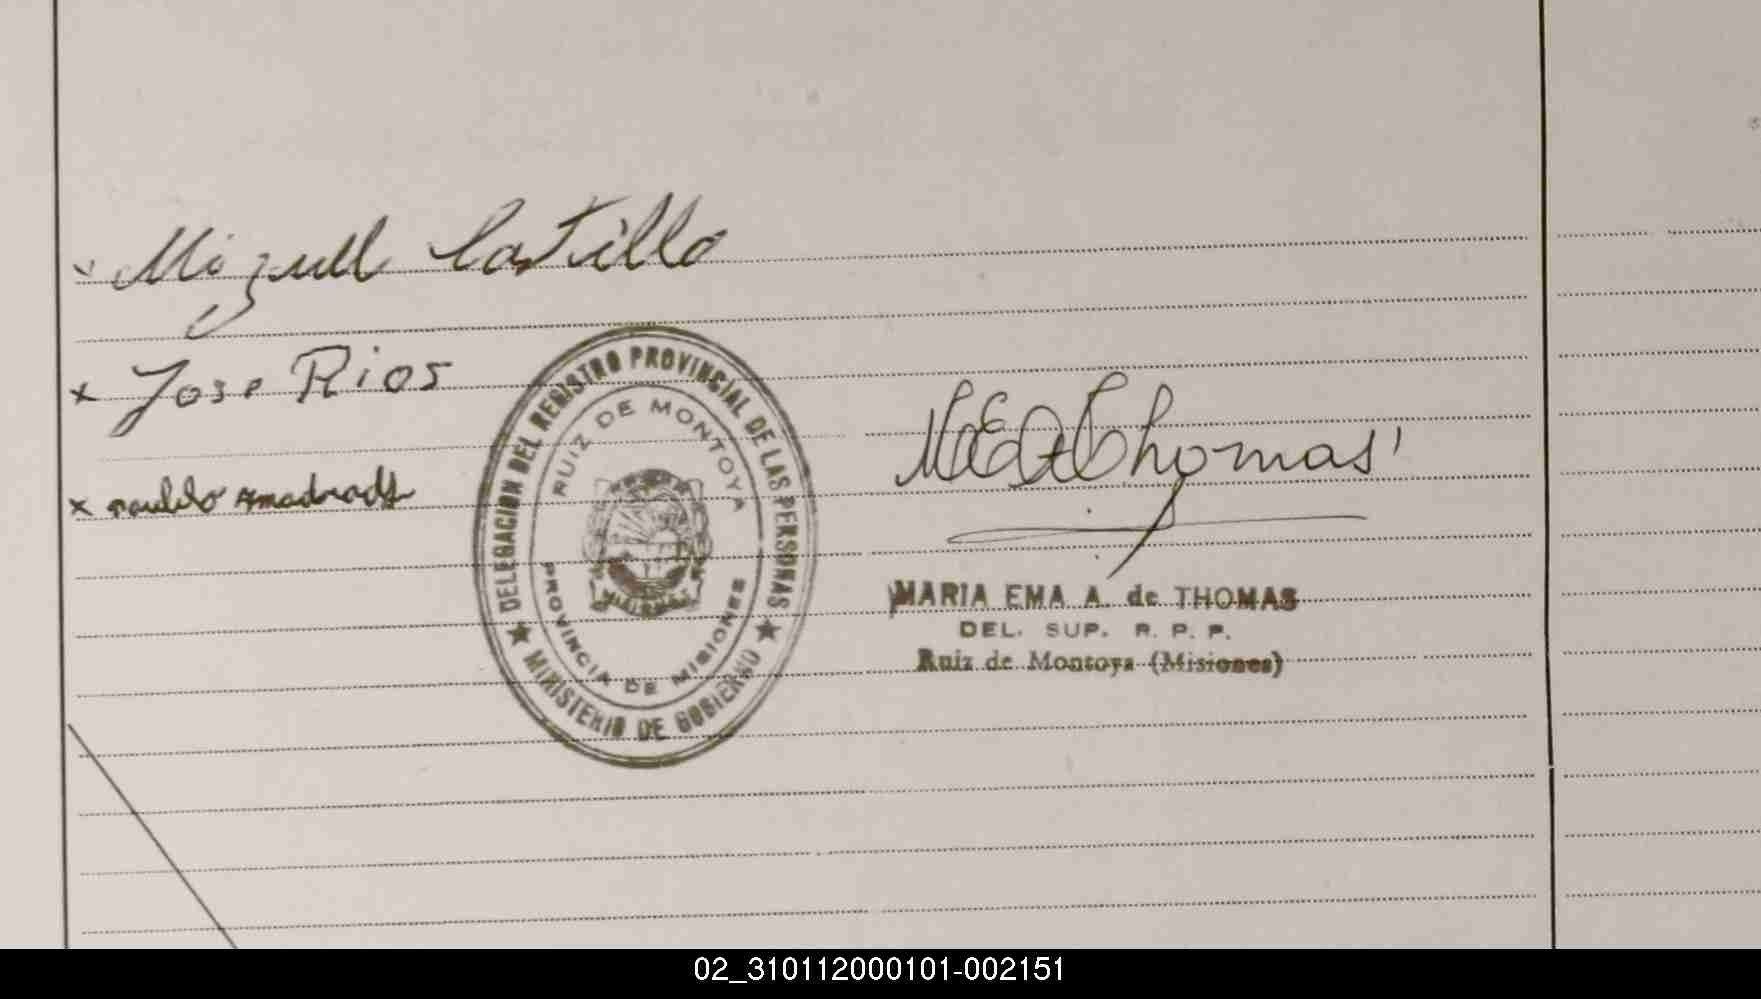 Miguel Castillo
x Jose Rios
x
DELEGACION DEL REGISTRO PROVINCIAL DE LAS PERSONAS
RUIZ DE MONTOYA
PROVINCIA DE MISIONES
★ MINISTERIO DE GOBIERNO ★
M E A Thomas
MARIA EMA A. de THOMAS
DEL. SUP. R. P. P.
Ruiz de Montoya (Misiones)
02_310112000101-002151